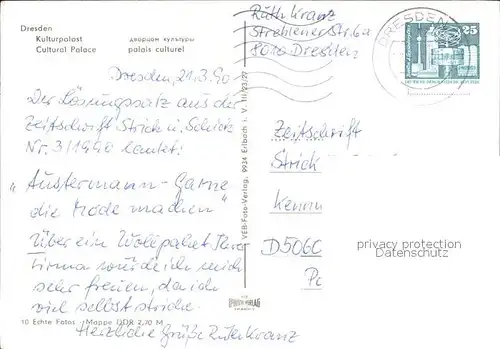 Dresden
Kulturpalast
Cultural Palace
дворцом культуры
palais culturel
Ruth Kranz
Strehlener Str. 6a
8010 Dresden
DRESDEN
25
Dresden, 21.3.90
Der Lösungssatz aus der
Zeitschrift Strick u. Schick
Nr. 3/1990 lautet:
"Austermann-Garne
die Mode machen"
Über ein Wollpaket Ihrer
Firma würde ich mich
sehr freuen, da ich
viel selbst stricke.
Herzliche Grüße Ruth Kranz
10 Echte Fotos Mappe DDR 2,70 M
VEB-Foto-Verlag, 9934 Erlbach i. V. III/23/27
Zeitschrift
Strick
Kennw
D5060
privacy protection
Datenschutz